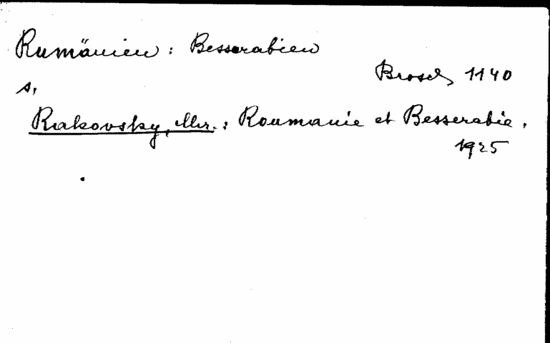 Rumänien : Bessarabien
Brosch 1140
s,
Rakovsky, Chr. : Roumanie et Besserabie.
1925